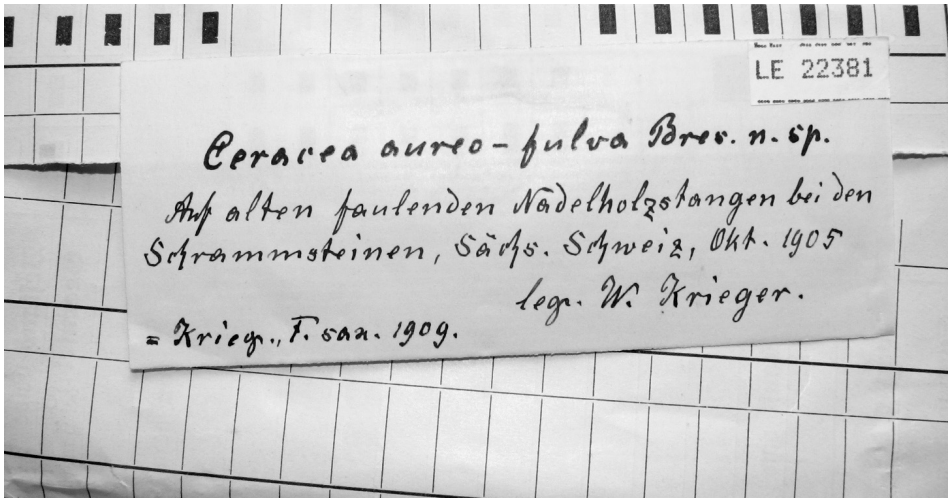 LE 22381
Ceracea aureo-fulva Bres. n. sp.
Auf alten faulenden Nadelholzstangen bei den
Schrammsteinen, Sächs. Schweiz, Okt. 1905
leg. W. Krieger.
= Krieg., F. sax. 1909.